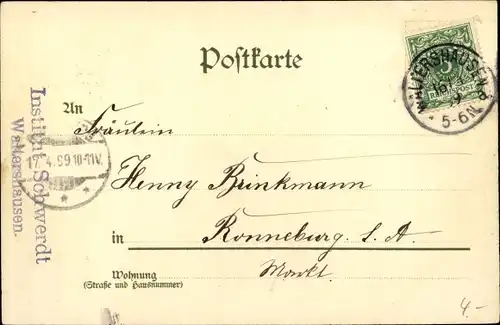 Postkarte
WALTERSHAUSEN
5-6N
REICHSPOST
An
Fräulein
Henny Brinkmann
in Ronneburg. S. A.
Markt.
Wohnung
(Straße und Hausnummer)
Institut Schwerdt
Waltershausen.
17.4.99.10-11V.
4.-